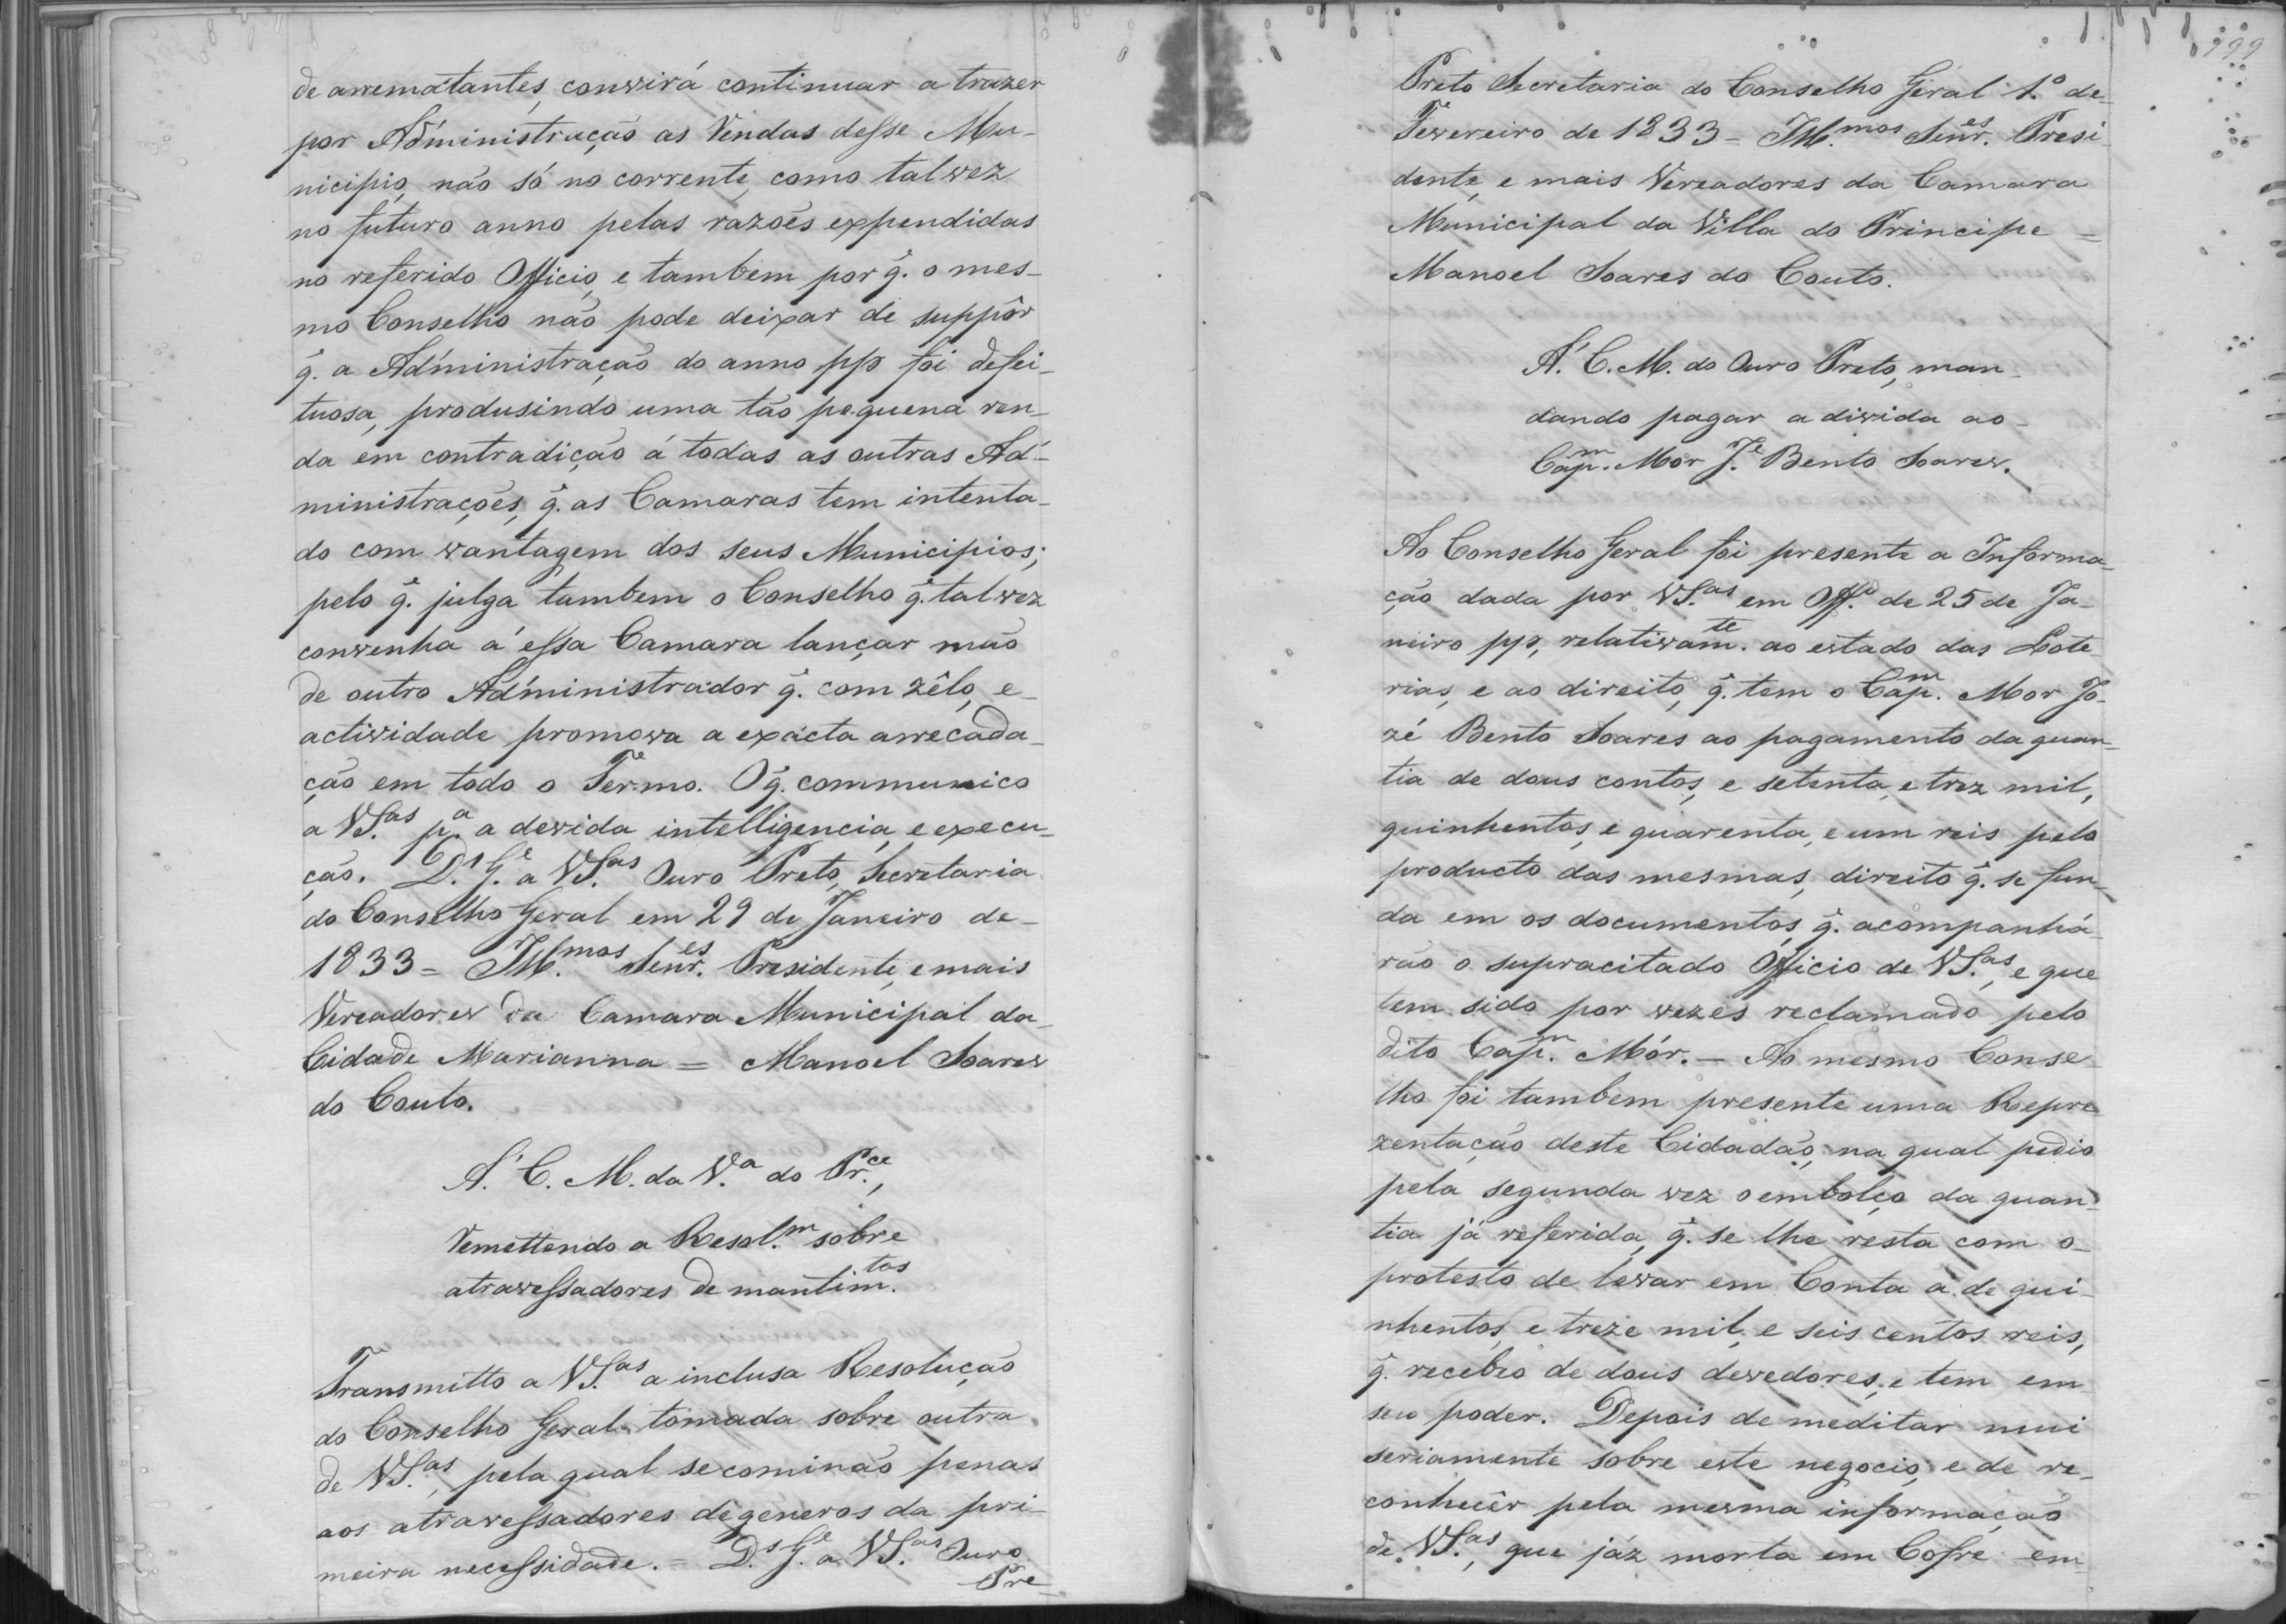 de arrematantes, convirá continuar a trazer
por Administração as Vendas desse Mu-
nicipio, não só no corrente, como talvez
no futuro anno pelas razoẽs expendidas
no referido Officio, e tambem por q̃. o mes-
mo Conselho não pode deixar de suppôr
q̃. a Administração do anno pp foi defei-
tuosa, produsindo uma tão pequena ren-
da em contradição á todas as outras Ad-
ministraçoẽs, q̃. as Camaras tem intenta-
do com vantagem dos seus Municipios;
pelo q̃. julga tambem o Conselho q̃. talvez
convenha á essa Camara lançar mão
de outro Administrador q̃. com zêlo, e-
actividade promova a exacta arrecada-
ção em todo o Termo. O q̃. communico
a VS.as p.a a devida intelligencia, e execu-
ção. D.s G.e a VS.as Ouro Preto, Secretaria
do Conselho Geral em 29 de Janeiro de-
1833 = Ill.mos Senr.es Presidente, e mais
Vereadores da Camara Municipal da-
Cidade Marianna = Manoel Soares
do Couto.
Á C. M. da V.a do Pr.ce,
Remettendo a Resol.m sobre
atravessadores de mantim.tos
Transmitto a VS.as a inclusa Resolução
do Conselho Geral tomada sobre outra
de VS.as, pela qual se cominão penas
aos atravessadores de generos da pri-
meira necessidade. = D.s G.e a VS.as Ouro
Pre-
199
Preto Secretaria do Conselho Geral 1.º de-
Fevereiro de 1833 = Ill.mos Senr.es Presi-
dente, e mais Vereadores da Camara
Municipal da Villa do Principe =
Manoel Soares do Couto.
Á C. M. do Ouro Preto, man-
dando pagar a divida ao-
Cap.m Mor J.e Bento Soares.
Ao Conselho Geral foi presente a Informa-
ção dada por VS.as em Off.o de 25 de Ja-
neiro pp, relativam.te ao estado das Lote-
rias, e ao direito, q̃. tem o Cap.m Mor Jo-
zé Bento Soares ao pagamento da quan-
tia de dous contos, e setenta, e trez mil,
quinhentos, e quarenta, e um reis pelo
producto das mesmas, direito q̃. se fun-
da em os documentos, q̃. acompanhá-
rão o supracitado Officio de VS.as, e que
tem sido por vezes reclamado pelo
dito Cap.m Mór. — Ao mesmo Conse-
lho foi tambem presente uma Repre-
zentação deste Cidadão, na qual pedio
pela segunda vez o embolço da quan-
tia já referida, q̃. se lhe resta com o-
protesto de levar em Conta a de qui-
nhentos, e treze mil, e seis centos reis,
q̃. recebeo de dous devedores, e tem em
seu poder. Depois de meditar mui
seriamente sobre este negocio, e de re-
conhecêr pela mesma informação
de VS.as, que jáz morta em Cofre em-